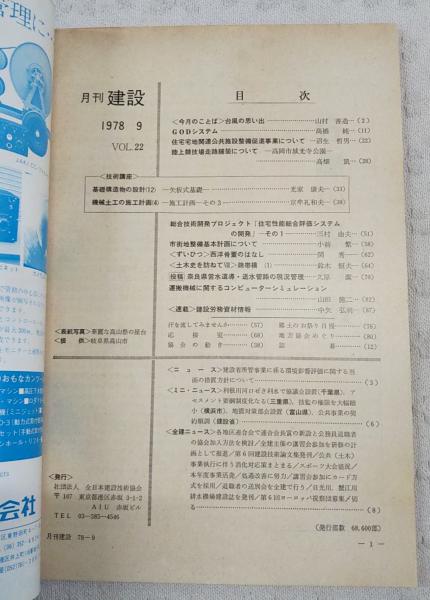 管理に・
月刊 建設
1978 9
VOL.22
目次
<今月のことば>台風の思い出 山村 善造…(2)
GODシステム 高橋 純…(11)
住宅宅地関連公共施設整備促進事業について 沼生 哲男…(22)
陸上競技場走路舗装について―高岡市城光寺公園―
高畑 凱…(28)
<技術講座>
基礎構造物の設計(12)―矢板式基礎― 光家 康夫…(33)
機械士工の施工計画(4)―施工計画―その3 京牟礼和夫…(38)
総合技術開発プロジェクト「住宅性能総合評価システム
の開発」―その1 三村 由夫…(51)
市街地整備基本計画について 小前 繁…(58)
<ずいひつ>西洋骨董のはなし 関 秀…(62)
鈴木 恒夫…(64)
投稿 奈良県営水道導・送水管路の現況管理 久原 潔…(70)
運搬機械に関するコンピューターシミュレーション
山田 隆二
<連載>建設労務資材情報 中矢 弘明
<表紙写真>華麗な高山祭の屋台
<提供>岐阜県高山市
汗を流してみませんか (57) 郷土のお祭り自慢 (76)
応接室 (68) 地方協会めぐり (80)
協会の動き (38) 誌 (12)
<ニュース>建設省所管事業に係る環境影響評価に関する当
面の措置方針について (3)
<ミニ・ニュース>利根川河口ぜき利水で協議会設置(千葉県)、ア
セスメント要綱制度化なる(三重県)、技監の権限を大幅縮
小(横浜市)、地震対策部会設置(富山県)、公共事業の契
約順調(建設省) (6)
<全建ニュース>各地区連合会で連合会長賞の新設と公務員退職者
の協会加入方法を検討/全建主催の講習会参加を研修の計
画として報道/第6回建設技術論文集発刊/公共(土木)
事業執行に伴う消化対応策まとまる/スポーツ大会盛況/
本年度事業活発/処遇改善に努力/講習会参加にカード方
式を採用/退職者の送別会を全建で行う/日光川、蟹江川
排水機場建設誌を発刊/第6回ヨーロッパ視察団募集/訪
る (8)
<発行>
社団法人 全日本建設技術協会
〒107 東京都港区赤坂3-1-2
AIU 赤坂ビル
TEL 03-585-4546
(発行部数 68,600部)
月刊建設 78-9
―1―